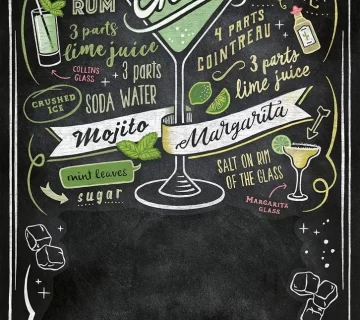 RUM
3 parts
lime juice
COLLINS
GLASS
3 parts
SODA WATER
CRUSHED
ICE
Mojito
mint leaves
sugar
4 PARTS
COINTREAU
3 parts
lime juice
Margarita
SALT ON RIM
OF THE GLASS
MARGARITA
GLASS